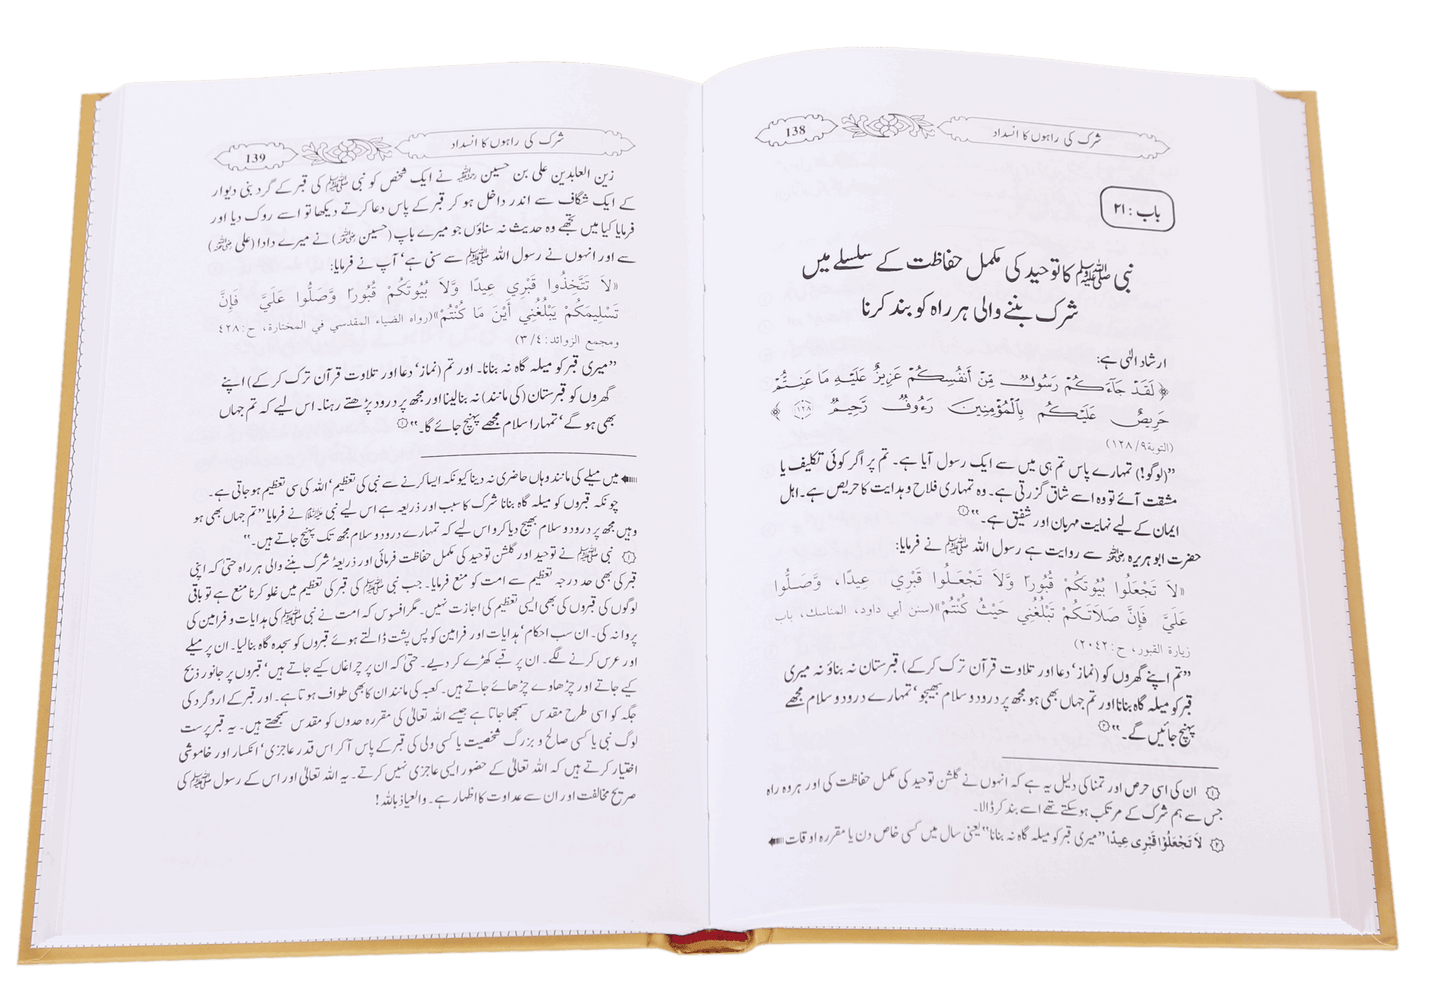 138
شرک کی راہوں کا انسداد
باب : ۲۱
نبی ﷺ کا توحید کی مکمل حفاظت کے سلسلے میں
شرک بننے والی ہر راہ کو بند کرنا
ارشاد الٰہی ہے:
﴿ لَقَدْ جَآءَكُمْ رَسُولٌ مِّنْ أَنفُسِكُمْ عَزِيزٌ عَلَيْهِ مَا عَنِتُّمْ
حَرِيصٌ عَلَيْكُم بِالْمُؤْمِنِينَ رَءُوفٌ رَّحِيمٌ ۝١٢٨ ﴾
(التوبة٩/ ١٢٨)
”(لوگو!) تمہارے پاس تم ہی میں سے ایک رسول آیا ہے۔ تم پر اگر کوئی تکلیف یا
مشقت آئے تو وہ اسے شاق گزرتی ہے۔ وہ تمہاری فلاح و ہدایت کا حریص ہے۔ اہل
ایمان کے لیے نہایت مہربان اور شفیق ہے۔“ ①
حضرت ابو ہریرہ ؓ سے روایت ہے رسول اللہ ﷺ نے فرمایا:
«لَا تَجْعَلُوا بُيُوتَكُمْ قُبُورًا وَّلَا تَجْعَلُوا قَبْرِي عِيدًا، وَّصَلُّوا
عَلَيَّ فَإِنَّ صَلَاتَكُمْ تَبْلُغُنِي حَيْثُ كُنْتُمْ»(سنن أبي داود، المناسك، باب
زيارة القبور، ح:٢٠٤٢)
”تم اپنے گھروں کو (نماز‘ دعا اور تلاوت قرآن ترک کر کے) قبرستان نہ بناؤ نہ میری
قبر کو میلہ گاہ بنانا اور تم جہاں بھی ہو مجھ پر درود و سلام بھیجو‘ تمہارے درود و سلام مجھے
پہنچ جائیں گے۔“ ②
① ان کی اسی حرص اور تمنا کی دلیل یہ ہے کہ انہوں نے گلشن توحید کی مکمل حفاظت کی اور ہر وہ راہ
جس سے ہم شرک کے مرتکب ہو سکتے تھے اسے بند کر ڈالا۔
② لَا تَجْعَلُوْا قَبْرِی عِیدًا ”میری قبر کو میلہ گاہ نہ بنانا“ یعنی سال میں کسی خاص دن یا مقررہ اوقات
139
شرک کی راہوں کا انسداد
زین العابدین علی بن حسین ؓ نے ایک شخص کو نبی ﷺ کی قبر کے گرد بنی دیوار
کے ایک شگاف سے اندر داخل ہو کر قبر کے پاس دعا کرتے دیکھا تو اسے روک دیا اور
فرمایا کیا میں تجھے وہ حدیث نہ سناؤں جو میرے باپ (حسین ؓ) نے میرے دادا (علی ؓ)
سے اور انہوں نے رسول اللہ ﷺ سے سنی ہے‘ آپ نے فرمایا:
«لَا تَتَّخِذُوا قَبْرِي عِيدًا وَّلَا بُيُوتَكُمْ قُبُورًا وَّصَلُّوا عَلَيَّ فَإِنَّ
تَسْلِيمَكُمْ يَبْلُغُنِي أَيْنَ مَا كُنْتُمْ»(رواه الضياء المقدسي في المختارة، ح:٤٢٨
ومجمع الزوائد:٤/ ٣)
”میری قبر کو میلہ گاہ نہ بنانا۔ اور تم (نماز‘ دعا اور تلاوت قرآن ترک کر کے) اپنے
گھروں کو قبرستان (کی مانند) نہ بنا لینا اور مجھ پر درود پڑھتے رہنا۔ اس لیے کہ تم جہاں
بھی ہو گے‘ تمہارا سلام مجھے پہنچ جائے گا۔“ ①
میں میلے کی مانند وہاں حاضری نہ دینا کیونکہ ایسا کرنے سے نبی کی تعظیم‘ اللہ کی سی تعظیم ہو جاتی ہے۔
چونکہ قبروں کو میلہ گاہ بنانا شرک کا سبب اور ذریعہ ہے اس لیے نبی ﷺ نے فرمایا ”تم جہاں بھی ہو
وہیں مجھ پر درود و سلام بھیج دیا کرو اس لیے کہ تمہارے درود و سلام مجھ تک پہنچ جاتے ہیں۔“
① نبی ﷺ نے توحید اور گلشن توحید کی مکمل حفاظت فرمائی اور ذریعۂ شرک بننے والی ہر راہ حتی کہ اپنی
قبر کی بھی حد درجہ تعظیم سے امت کو منع فرمایا۔ جب نبی ﷺ کی قبر کی تعظیم میں غلو کرنا منع ہے تو باقی
لوگوں کی قبروں کی بھی ایسی تعظیم کی اجازت نہیں۔ مگر افسوس کہ امت نے نبی ﷺ کی ہدایات و فرامین کی
پروا نہ کی۔ ان سب احکام‘ ہدایات اور فرامین کو پس پشت ڈالتے ہوئے قبروں کو سجدہ گاہ بنا لیا۔ ان پر میلے
اور عرس کرنے لگے۔ ان پر قبے کھڑے کر دیے۔ حتی کہ ان پر چراغاں کیے جاتے ہیں‘ قبروں پر جانور ذبح
کیے جاتے اور چڑھاوے چڑھائے جاتے ہیں۔ کعبہ کی مانند ان کا بھی طواف ہوتا ہے۔ اور قبر کے ارد گرد کی
جگہ کو اسی طرح مقدس سمجھا جاتا ہے جیسے اللہ تعالیٰ کی مقررہ حدوں کو مقدس سمجھتے ہیں۔ یہ قبر پرست
لوگ نبی یا کسی صالح و بزرگ شخصیت یا کسی ولی کی قبر کے پاس آ کر اس قدر عاجزی‘ انکسار اور خاموشی
اختیار کرتے ہیں کہ اللہ تعالیٰ کے حضور ایسی عاجزی نہیں کرتے۔ یہ اللہ تعالیٰ اور اس کے رسول ﷺ کی
صریح مخالفت اور ان سے عداوت کا اظہار ہے۔ والعیاذ باللہ!